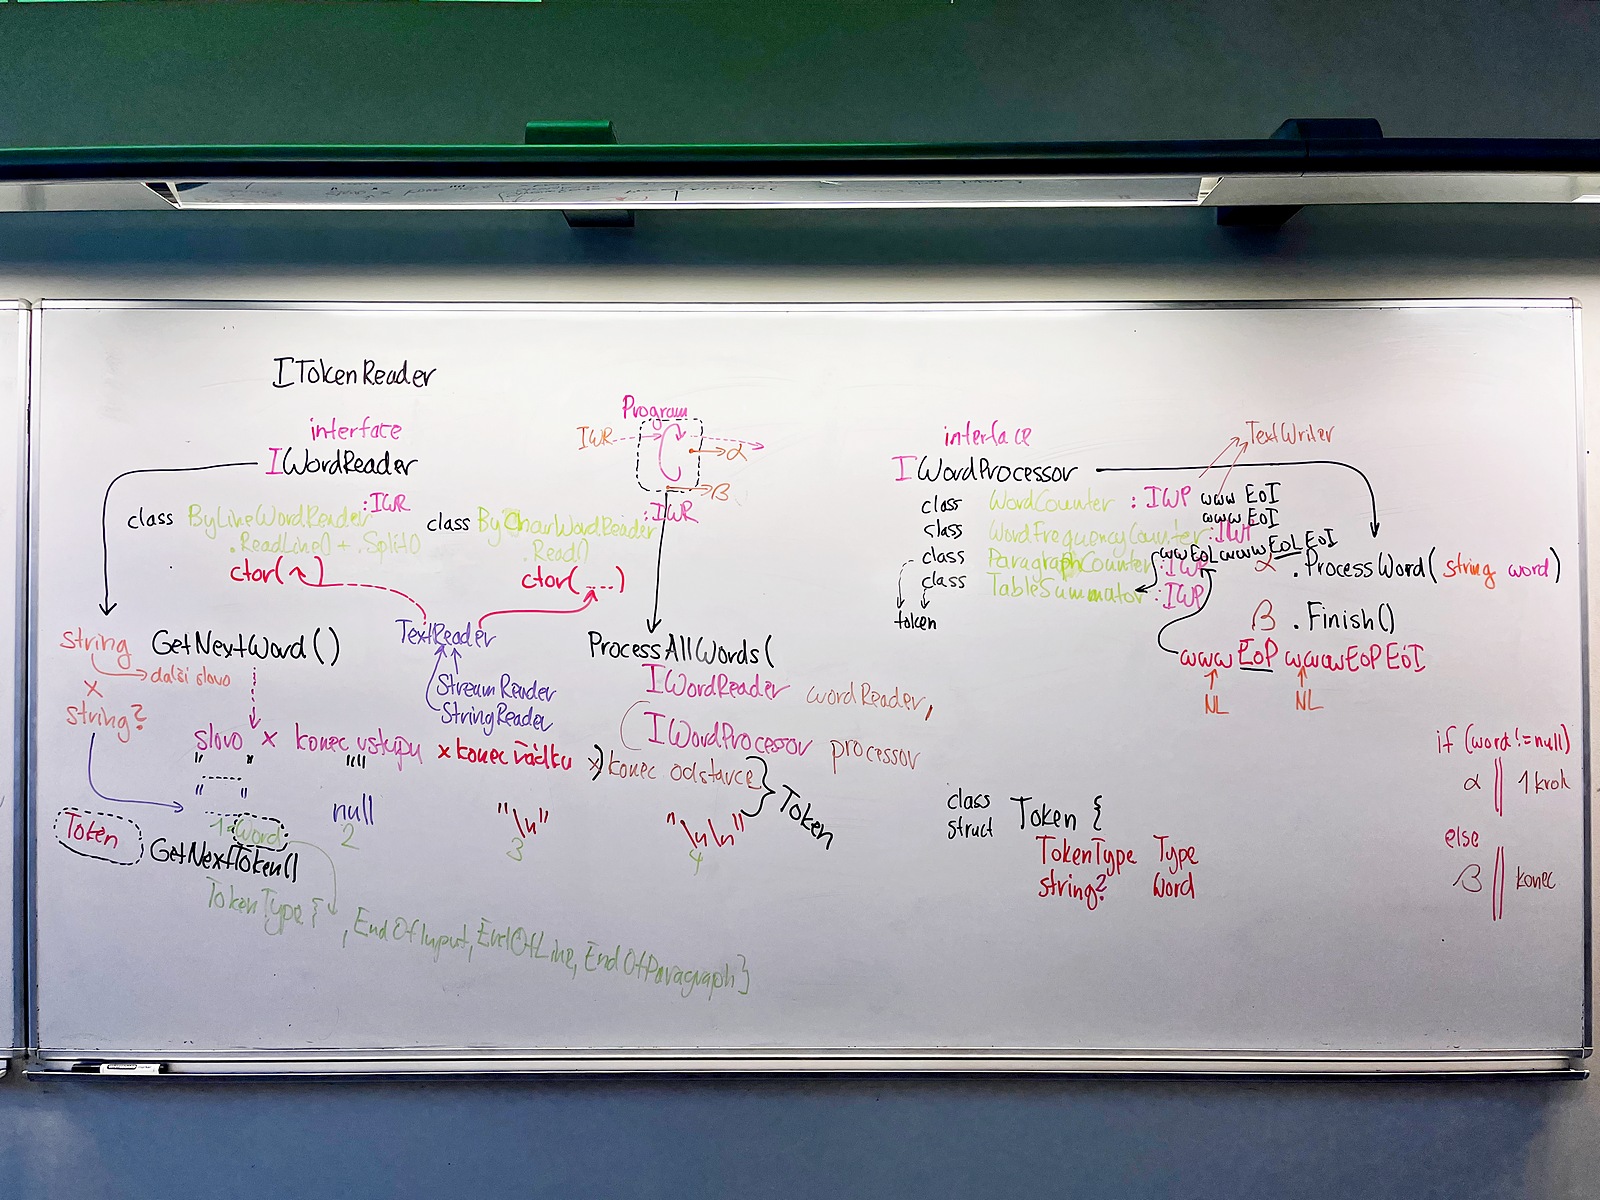 ITokenReader
interface
IWordReader
class ByLineWordReader :IWR
.ReadLine() + .Split()
ctor( )
class ByCharWordReader :IWR
.Read()
ctor(...)
Program
IWR
α
β
string GetNextWord()
další slovo
x
string?
TextReader
StreamReader
StringReader
ProcessAllWords(
IWordReader wordReader,
IWordProcessor processor
slovo x konec vstupu x konec řádku x konec odstavce } Token
" " ""
" "
null "\n" "\n\n"
1 Word 2 3 4
Token GetNextToken()
TokenType { , EndOfInput, EndOfLine, EndOfParagraph }
interface
IWordProcessor
TextWriter
class WordCounter : IWP www EoI
class WordFrequencyCounter :IWP www EoI
class ParagraphCounter :IWP wwEoLwwwEoLEoI
class TableSummator :IWP
token
α .ProcessWord(string word)
β .Finish()
www EoP wwwEoPEoI
NL NL
class
struct Token {
TokenType Type
string? Word
if (word != null)
α 1 krok
else
β konec